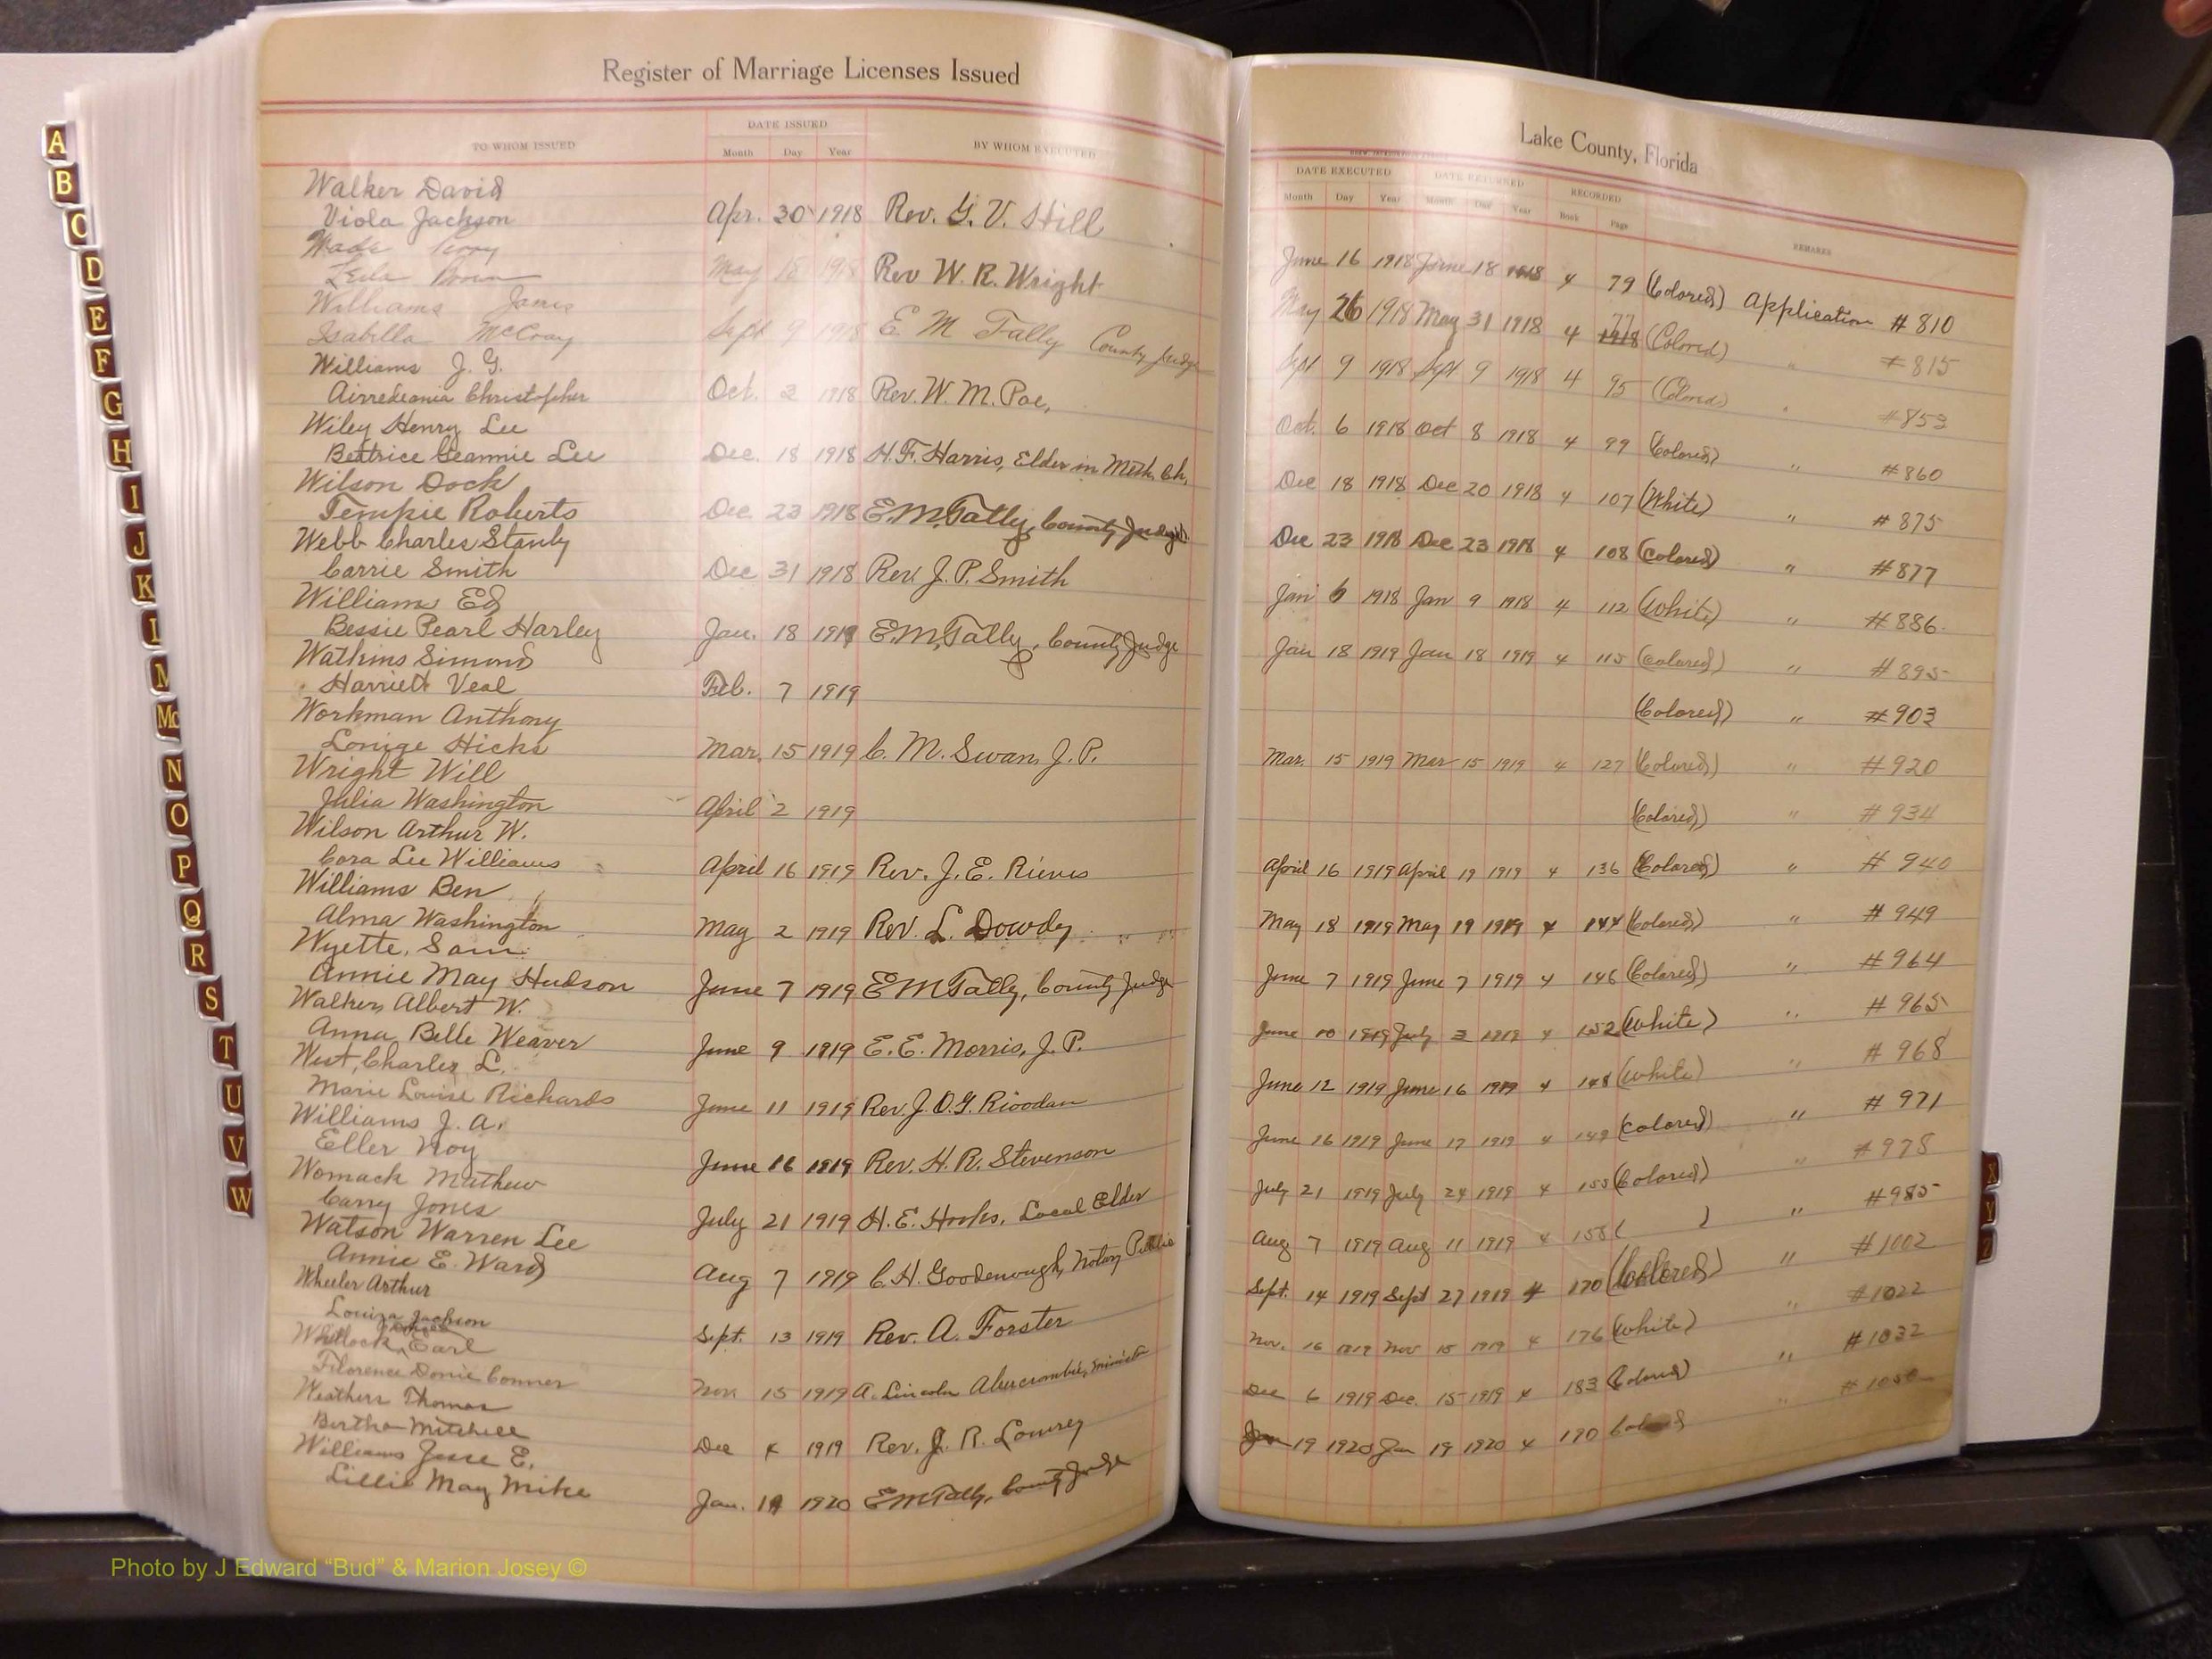 Register of Marriage Licenses Issued
TO WHOM ISSUED DATE ISSUED BY WHOM EXECUTED
Month Day Year
Walker David
Viola Jackson Apr. 30 1918 Rev. G. V. Hill
Wade Perry
Leila May 18 1918 Rev W. R. Wright
Williams James
Isabella McCray Sept 9 1918 E M Tally County Judge
Williams J. G.
Airredeania Christopher Oct. 2 1918 Rev. W. M. Poe,
Wiley Henry Lee
Beatrice Geannie Lee Dec. 18 1918 H. F. Harris, Elder in Meth. Ch,
Wilson Dock
Tempie Roberts Dec 23 1918 E. M. Tally, County Judge
Webb Charles Stanly
Carrie Smith Dec 31 1918 Rev. J. P. Smith
Williams Ed
Bessie Pearl Harley Jan. 18 1919 E. M. Tally, County Judge
Watkins Simond
Harriett Veal Feb. 7 1919
Workman Anthony
Hicks Mar. 15 1919 C. M. Swan, J. P.
Wright Will
Julia Washington April 2 1919
Wilson Arthur W.
Cora Lee Williams April 16 1919 Rev. J. E. Rieves
Williams Ben
Alma Washington May 2 1919 Rev. L. Dowdy
Wyette, Sam
Annie May Hudson June 7 1919 E M Tally, County Judge
Walker, Albert W.
Anna Belle Weaver June 9 1919 E. E. Morris, J. P.
West, Charles L.
Marie Louise Richards June 11 1919 Rev. J. O. G.
Williams J. A.
Eller June 16 1919 Rev. H. R. Stevenson
Womack Mathew
Carry Jones July 21 1919 H. E. Hooks, Local Elder
Watson Warren Lee
Annie E. Ward Aug 7 1919 C. H. Goodenough, Notary Public
Wheeler Arthur
Louiza Jackson Sept. 13 1919 Rev. A. Forster
Whitlock Earl
Filorence Donie Conner Nov 15 1919 A. Lincoln Abercrombie, Minister
Weathers Thomas
Bertha Mitchell Dec 4 1919 Rev. J. R. Lowrey
Williams Jesse E.
Lillie May Mike Jan. 1920 E M Tally, County Judge
Lake County, Florida
DATE EXECUTED DATE RETURNED RECORDED REMARKS
Month Day Year Month Day Year Book Page
June 16 1918 June 18 1918 4 79 (Colored) Application # 810
May 26 1918 May 31 1918 4 77 1918 (Colored) " # 815
Sept 9 1918 Sept 9 1918 4 95 (Colored) " # 853
Oct. 6 1918 Oct 8 1918 4 99 (Colored) " # 860
Dec 18 1918 Dec 20 1918 4 107 (White) " # 875
Dec 23 1918 Dec 23 1918 4 108 (Colored) " # 877
Jan 6 1918 Jan 9 1918 4 112 (White) " # 886
Jan 18 1919 Jan 18 1919 4 115 (Colored) " # 895
(Colored) " # 903
Mar. 15 1919 Mar 15 1919 4 127 (Colored) " # 920
(Colored) " # 934
April 16 1919 April 19 1919 4 136 (Colored) " # 940
May 18 1919 May 19 1919 4 144 (Colored) " # 949
June 7 1919 June 7 1919 4 146 (Colored) " # 964
June 10 1919 July 3 1919 4 152 (White) " # 965
June 12 1919 June 16 1919 4 148 (White) " # 968
June 16 1919 June 17 1919 4 149 (Colored) " # 971
July 21 1919 July 24 1919 4 155 (Colored) " # 978
Aug 7 1919 Aug 11 1919 4 158 ( ) " # 985
Sept. 14 1919 Sept 27 1919 4 170 (Colored) " # 1002
Nov. 16 1919 Nov 15 1919 4 176 (White) " # 1022
Dec 6 1919 Dec. 15 1919 4 183 (Colored) " # 1032
Jan 19 1920 Jan 19 1920 4 190 "
A
B
C
D
E
F
G
H
I
J
K
L
M
Mc
N
O
P
Q
R
S
T
U
V
W
X
Y
Z
Photo by J Edward “Bud” & Marion Josey ©